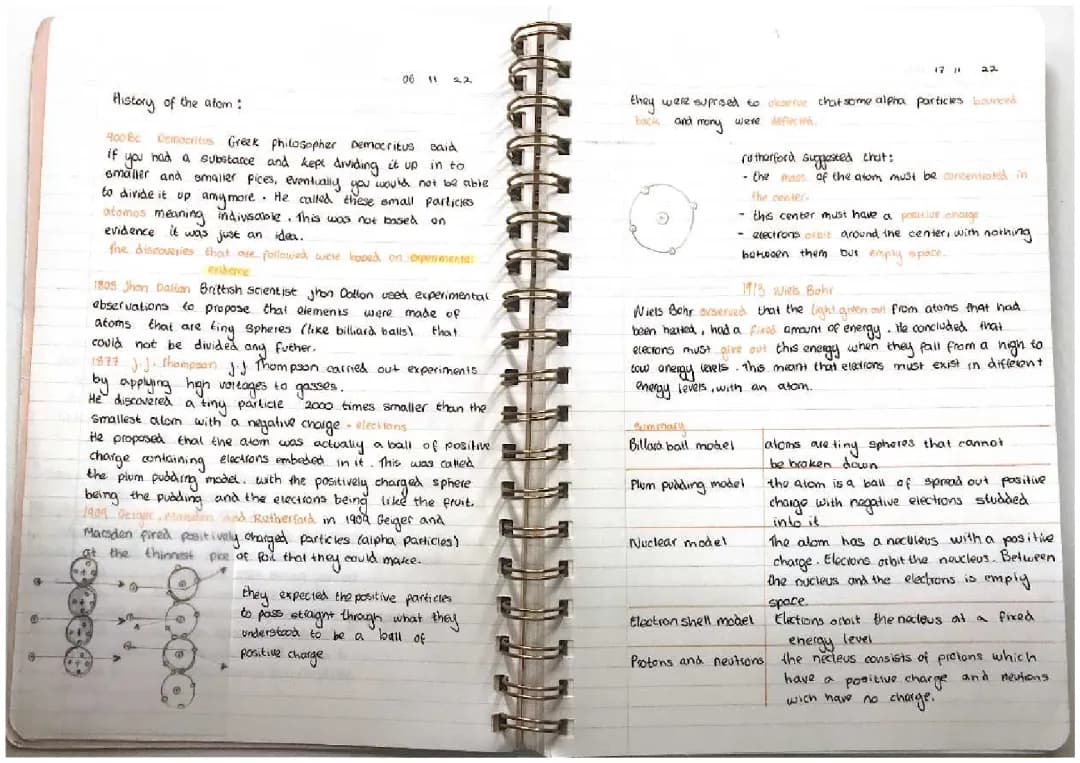 06 11 22
History of the atom:
400BC Democritus Greek philosopher Democritus said
if you had a substance and kept dividing it up in to
smaller and smaller pices, eventually you would not be able
to divide it up anymore. He called these small particles
atomos meaning indivisable. This was not based on
evidence it was just an idea.
The discoveries that are followed were based on experimental
evidence
1805 Jhon Dalton Brittish scientist jhon Dalton used experimental
observations to propose that elements were made of
atoms that are tiny spheres (like billiard balls) that
could not be divided any futher.
1897 J.J. Thompson J.J Thompson carried out experiments
by applying high voltages to gasses.
He discovered a tiny particle 2000 times smaller than the
smallest atom with a negative charge - electrons
He proposed that the atom was actually a ball of positive
charge containing electrons embeded in it. This was called
the plum pudding model. with the positively charged sphere
being the pudding and the electrons being like the fruit.
1909 Geiger, Marsden and Rutherford in 1909 Geiger and
Marsden fired positively charged particles (alpha particles)
at the thinnest pice of foil that they could make.
they expected the positive particles
to pass straight through what they
understood to be a ball of
positive charge
17 11 22
they were suprised to observe that some alpha particles bounced
back and many were deflected.
rutherford suggested that:
- the mass of the atom must be concentrated in
the center.
- this center must have a positive charge
- electrons orbit around the center, with nothing
between them but empty space.
1913 Niels Bohr
Niels Bohr observed that the light given out from atoms that had
been heated, had a fixed amount of energy. He concluded that
elecrons must give out this energy when they fall from a high to
low energy levels. This meant that elections must exist in different
energy levels, with an atom.
Summary
Billard ball model atoms are tiny spheres that cannot
be broken down
Plum pudding model the atom is a ball of spread out positive
charge with negative electrons studded
into it
Nuclear model The atom has a nucleus with a positive
charge. Elecrons orbit the neucleus. Between
the nucleus and the electrons is empty
space.
Electron shell model Elections orbit the nucleus at a fixed
energy level
Protons and neutrons the necleus consists of protons which
have a positive charge and neutrons
wich have no charge.